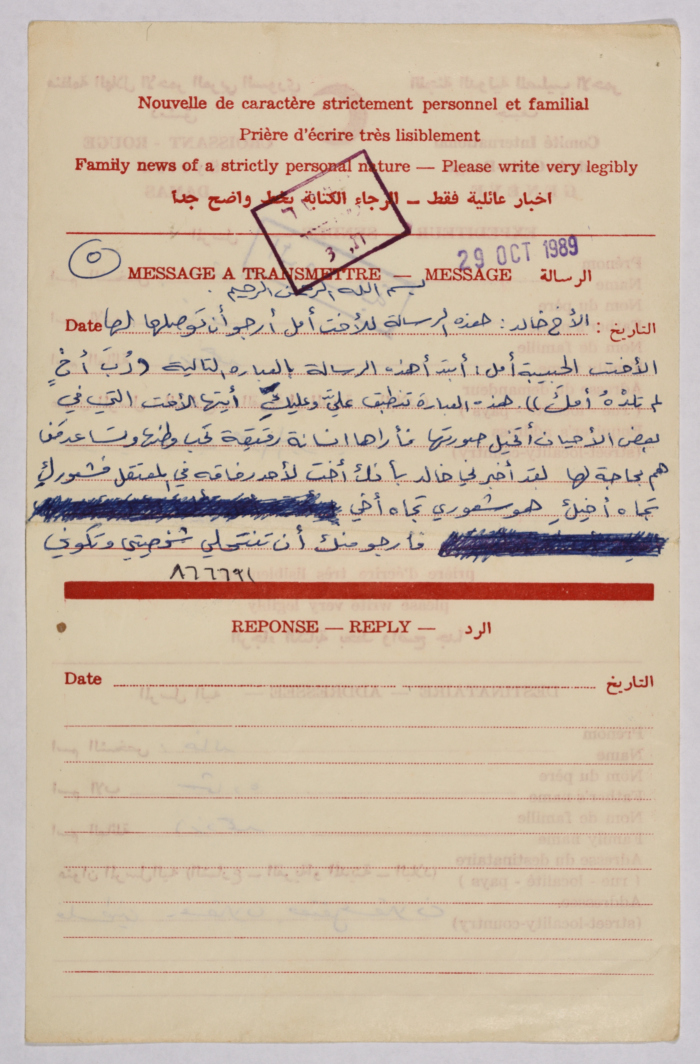 Nouvelle de caractère strictement personnel et familial
Prière d'écrire très lisiblement
Family news of a strictly personal nature — Please write very legibly
اخبار عائلية فقط ــ الرجاء الكتابة بخط واضح جدا
29 OCT 1989
٥
MESSAGE A TRANSMETTRE — MESSAGE الرسالة
بسم الله الرحمن الرحيم
Date التاريخ : الأخ خالد : هذه الرسالة للأخت أمل أرجو أن توصلها لها
الأخت الحبيبة أمل : أبتدأ هذه الرسالة بالعبارة التالية (( رُبَ أخٍ
لم تلدْهُ أمكَ )). هذه العبارة تنطبق عليَّ وعليكِ أيتها الأخت التي في
بعض الأحيان أتخيل صورتها فأراها انسانة رقيقة تحب وطنها وتساعد من
هم بحاجة لها لقد أخبرني خالد بأنك أخت لأحد رفاقه في المعتقل فشعوركِ
تجاه أخيكِ هو شعوري تجاه أخي
فأرجو منك أن تنتحلي شخصيتي وتكوني
٨٦٦٦٩١
REPONSE — REPLY — الرد
Date التاريخ